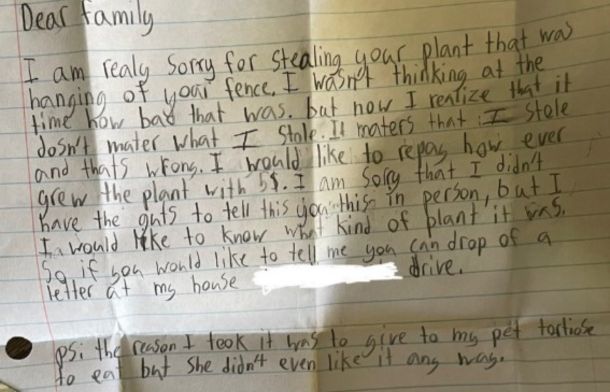 Dear family
I am realy sorry for stealing your plant that was
hanging of your fence. I wasn't thinking at the
time how bad that was. but now I realize that it
dosn't mater what I stole. It maters that I stole
and thats wrong. I would like to repay how ever
grew the plant with 5$. I am sorry that I didn't
have the guts to tell this you this in person, but I
I would like to know what kind of plant it was.
So if you would like to tell me you can drop of a
letter at my house drive.
psi the reason I took it was to give to my pet tortiose
to eat but she didn't even like it any way.